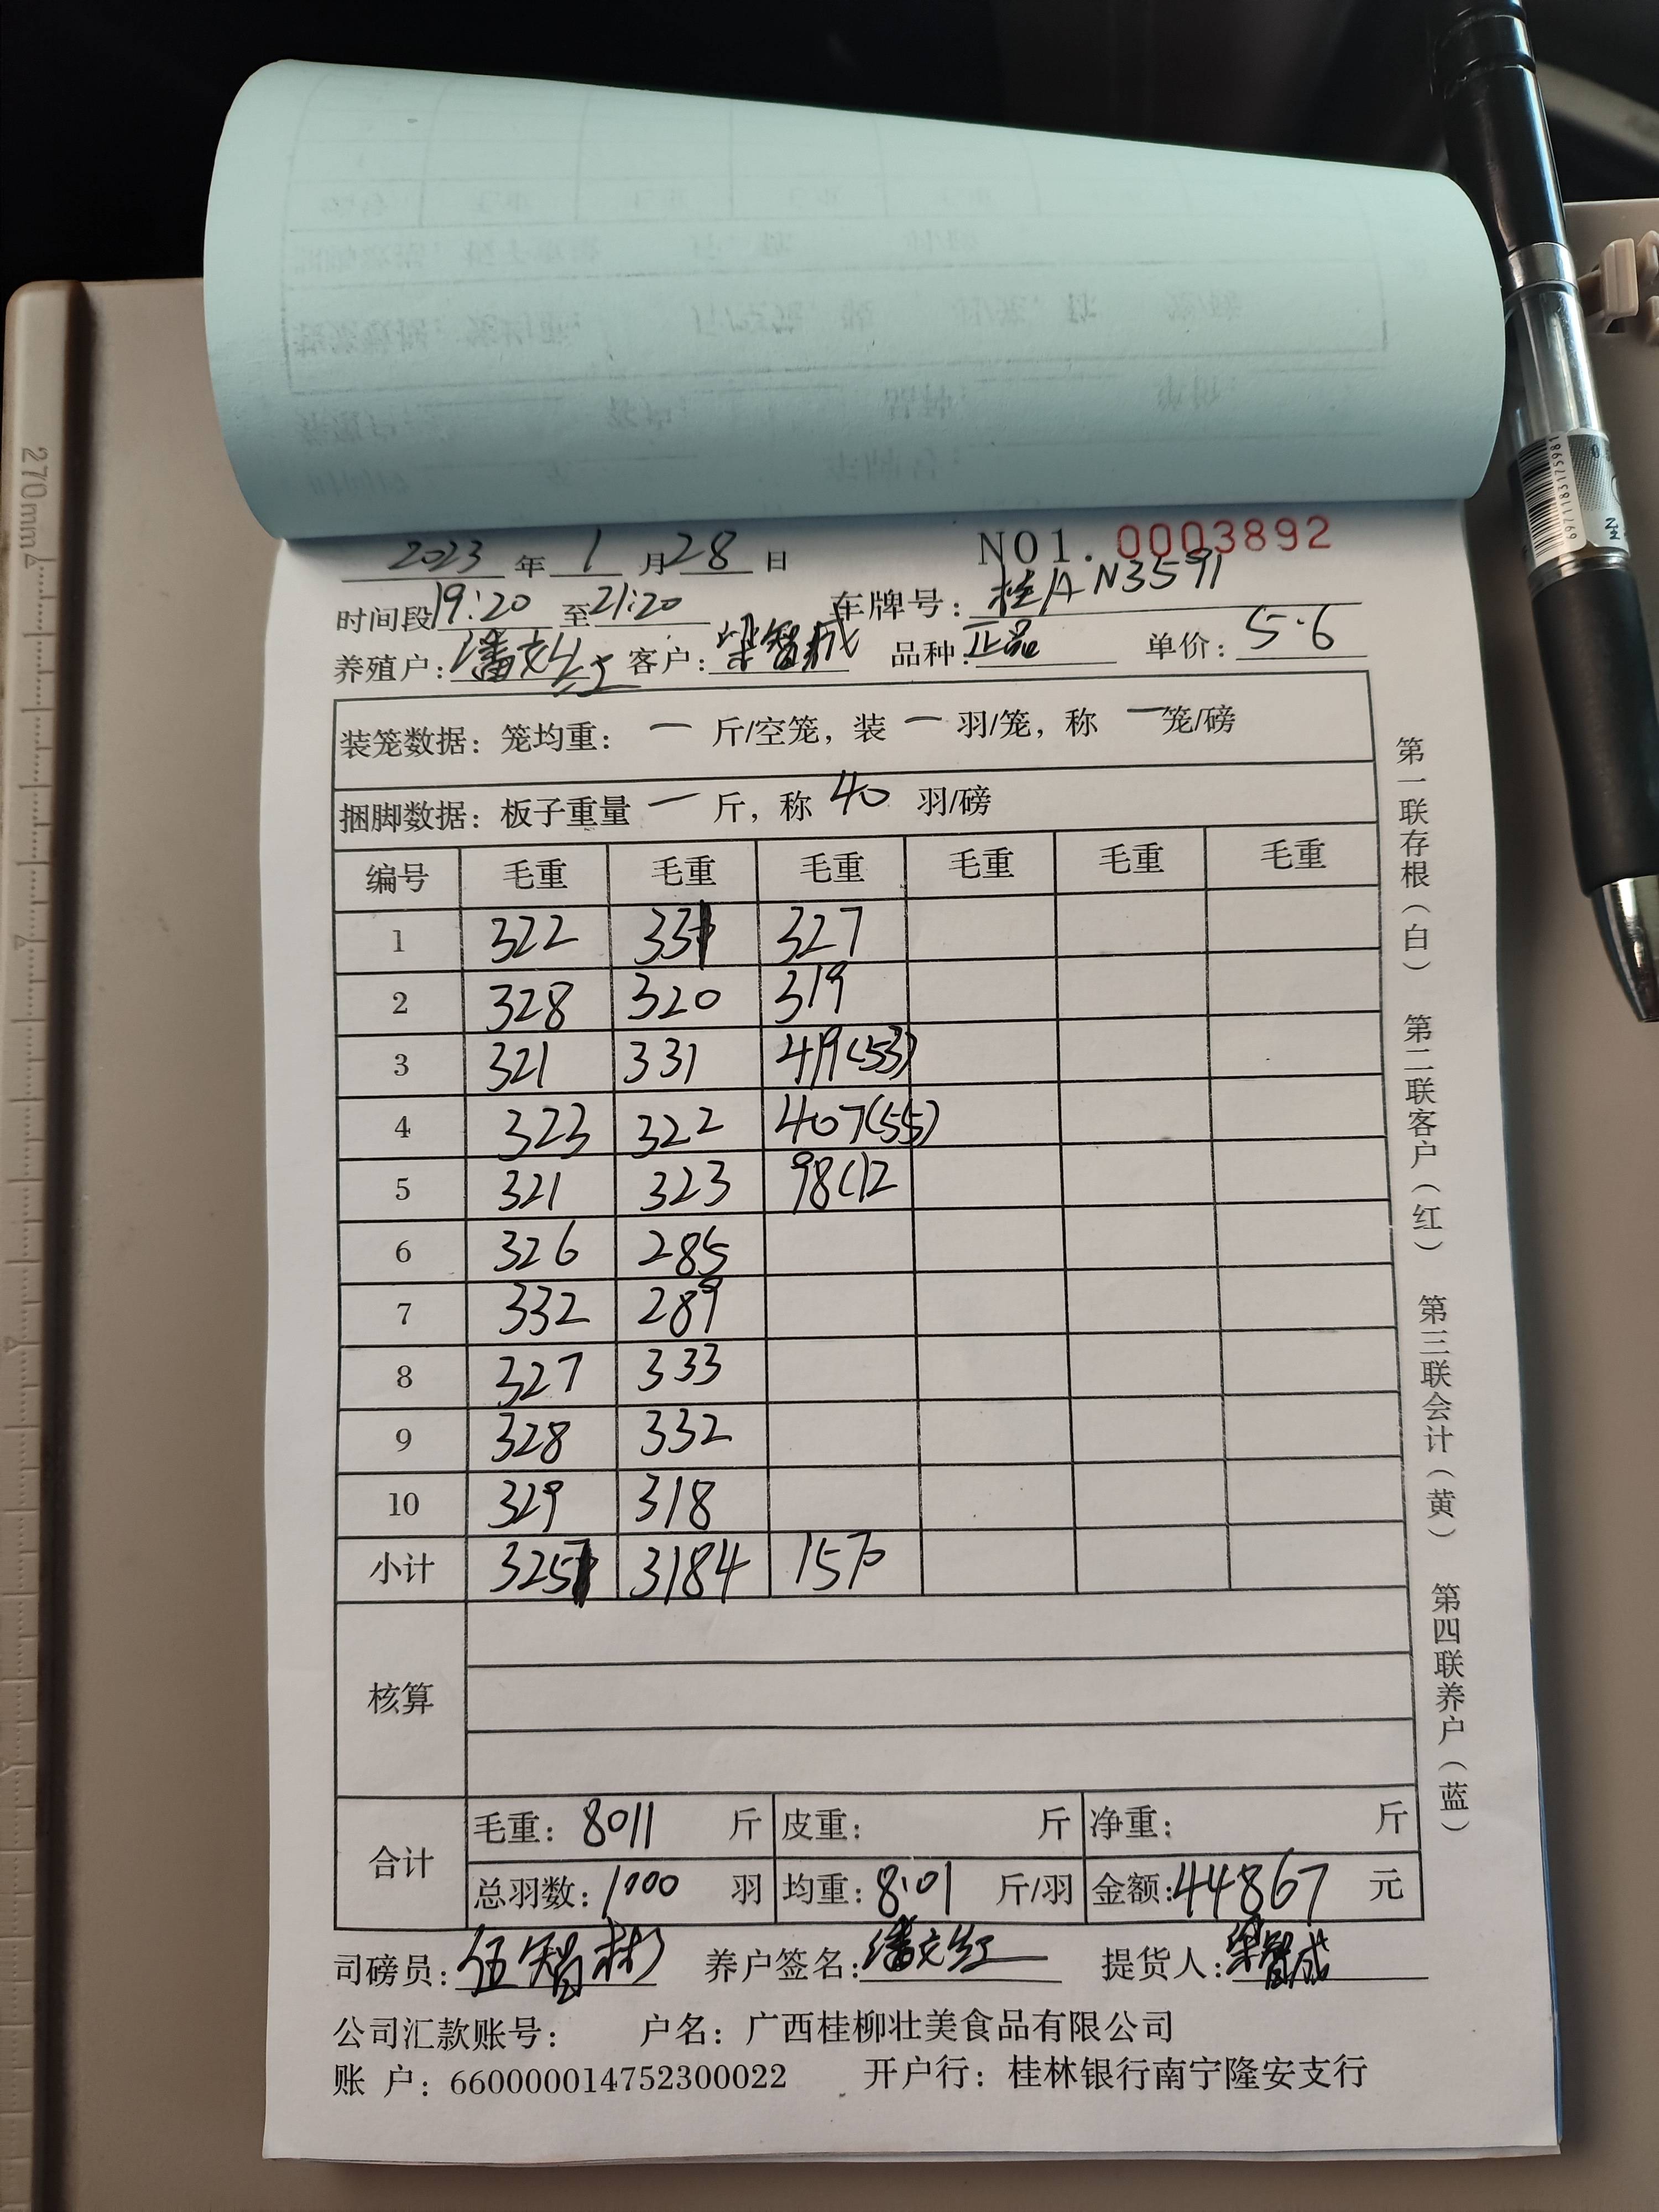 2023 年 1 月 28 日 NO1. 0003892
时间段 19:20 至 21:20 车牌号: 桂A N3591
养殖户: 潘文红 客户: 梁智成 品种: 正品 单价: 5.6
装笼数据: 笼均重: 一 斤/空笼, 装 一 羽/笼, 称 一 笼/磅
捆脚数据: 板子重量 一 斤, 称 40 羽/磅
编号 毛重 毛重 毛重 毛重 毛重 毛重
1 322 331 327
2 328 320 319
3 321 331 419(53)
4 323 322 407(55)
5 321 323 98(12
6 326 285
7 332 289
8 327 333
9 328 332
10 329 318
小计 3257 3184 1570
核算
合计
毛重: 8011 斤 皮重: 斤 净重: 斤
总羽数: 1000 羽 均重: 8.01 斤/羽 金额: 44867 元
司磅员: 伍智彬 养户签名: 潘文红 提货人: 梁智成
公司汇款账号: 户名: 广西桂柳壮美食品有限公司
账 户: 660000014752300022 开户行: 桂林银行南宁隆安支行
第一联存根(白) 第二联客户(红) 第三联会计(黄) 第四联养户(蓝)
270mm
6971183175981